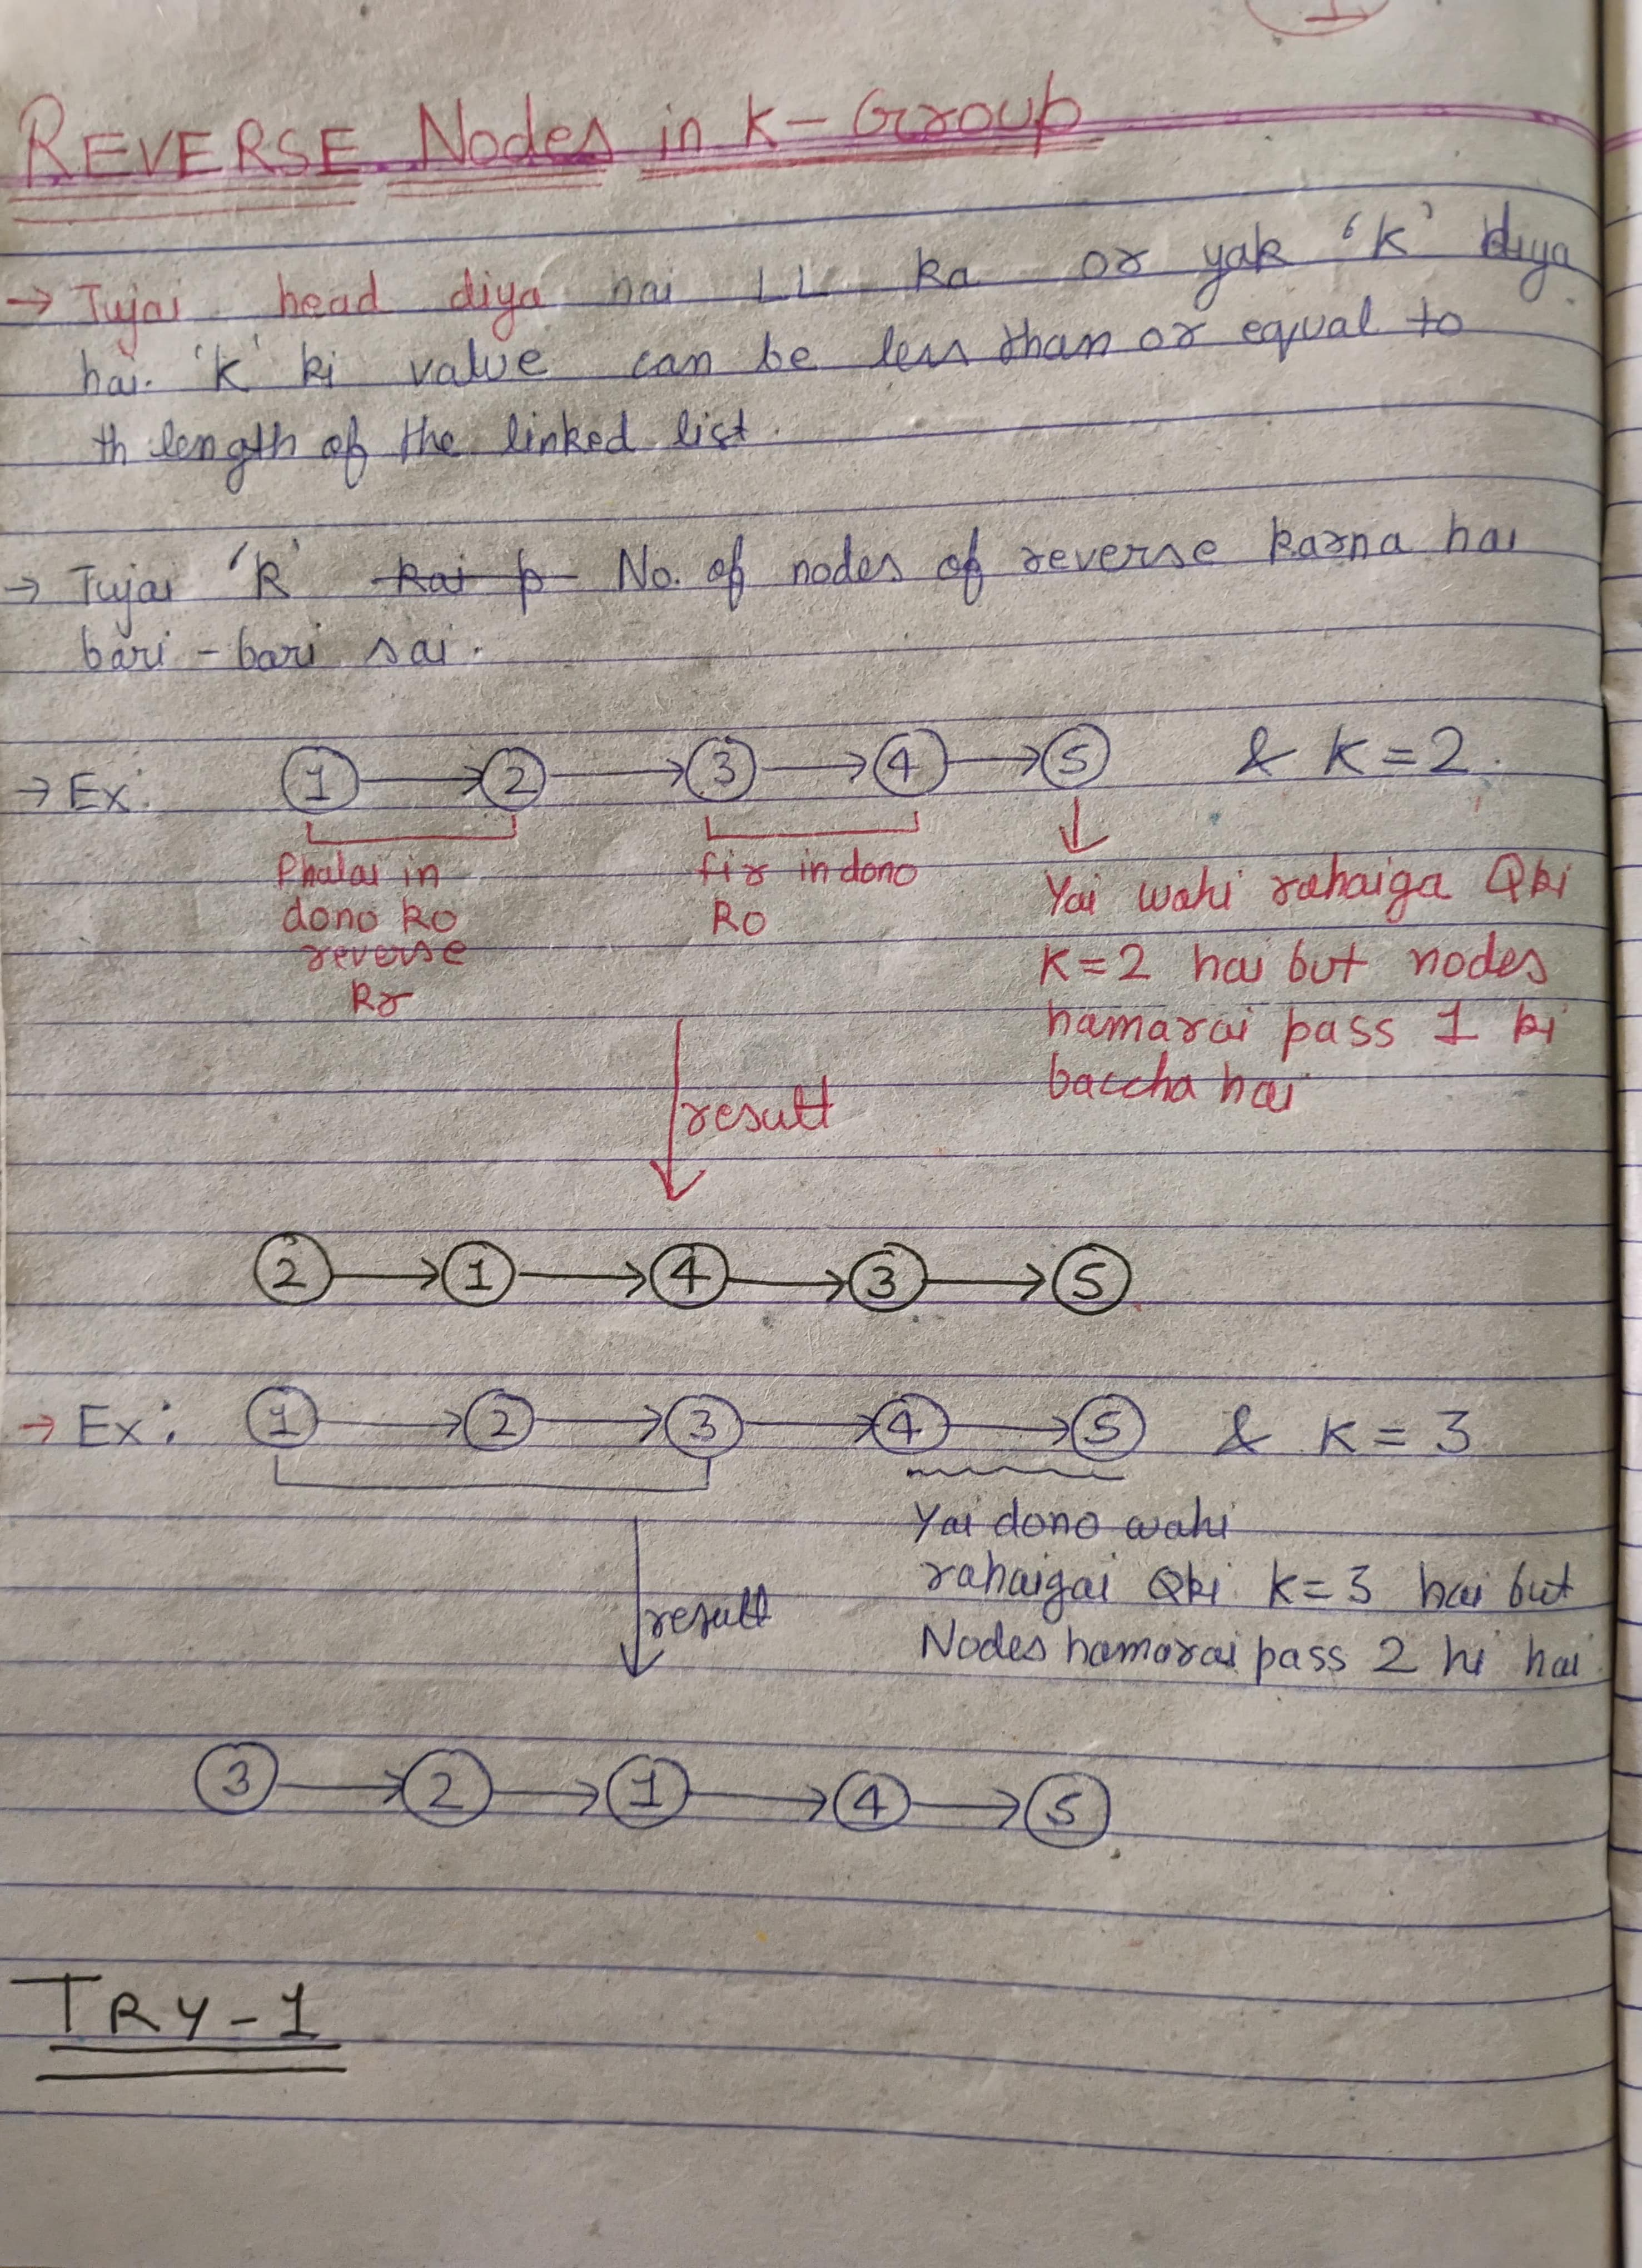 1
REVERSE Nodes in K-Group
→ Tujai head diya hai LL ka or yak 'K' diya
hai. 'K' ki value can be less than or equal to
th length of the linked list.
→ Tujai 'K' kai p No. of nodes of reverse karna hai
bari-bari sai.
→ Ex: 1 → 2 → 3 → 4 → 5 & K=2.
Phalai in
dono ko
reverse
kr
fir in dono
ko
Yai wahi rahaiga Qki
K=2 hai but nodes
hamarai pass 1 ki
baccha hai
result
2 → 1 → 4 → 3 → 5
→ Ex: 1 → 2 → 3 → 4 → 5 & K=3
Yai dono wahi
rahaigai Qki K=3 hai but
Nodes hamarai pass 2 hi hai
result
3 → 2 → 1 → 4 → 5
TRY-1